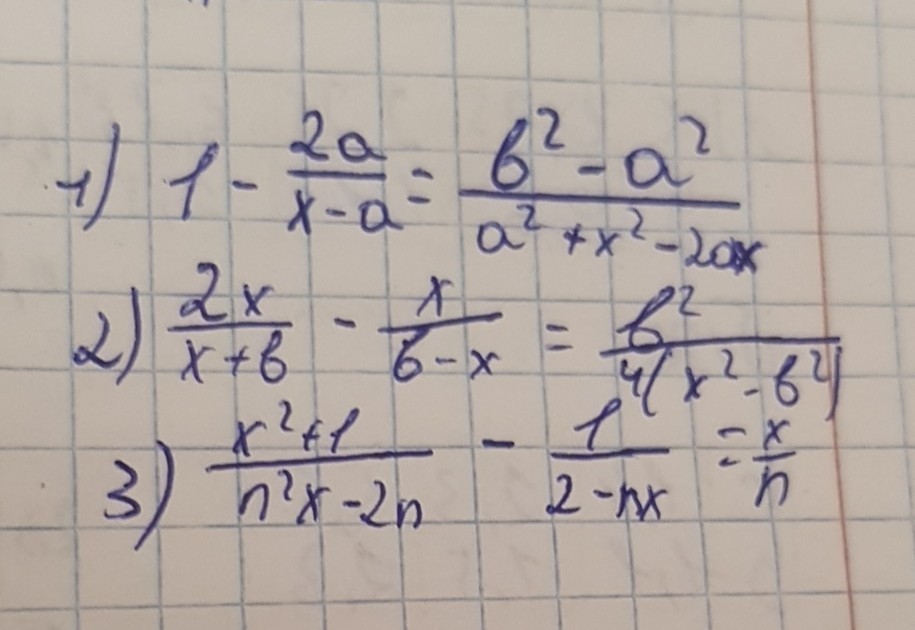 1) 1 - 2a/(x-a) = (b² - a²)/(a² + x² - 2ax)
2) 2x/(x+b) - x/(b-x) = b²/(4(x² - b²))
3) (x²+1)/(n²x-2n) - 1/(2-nx) = x/n